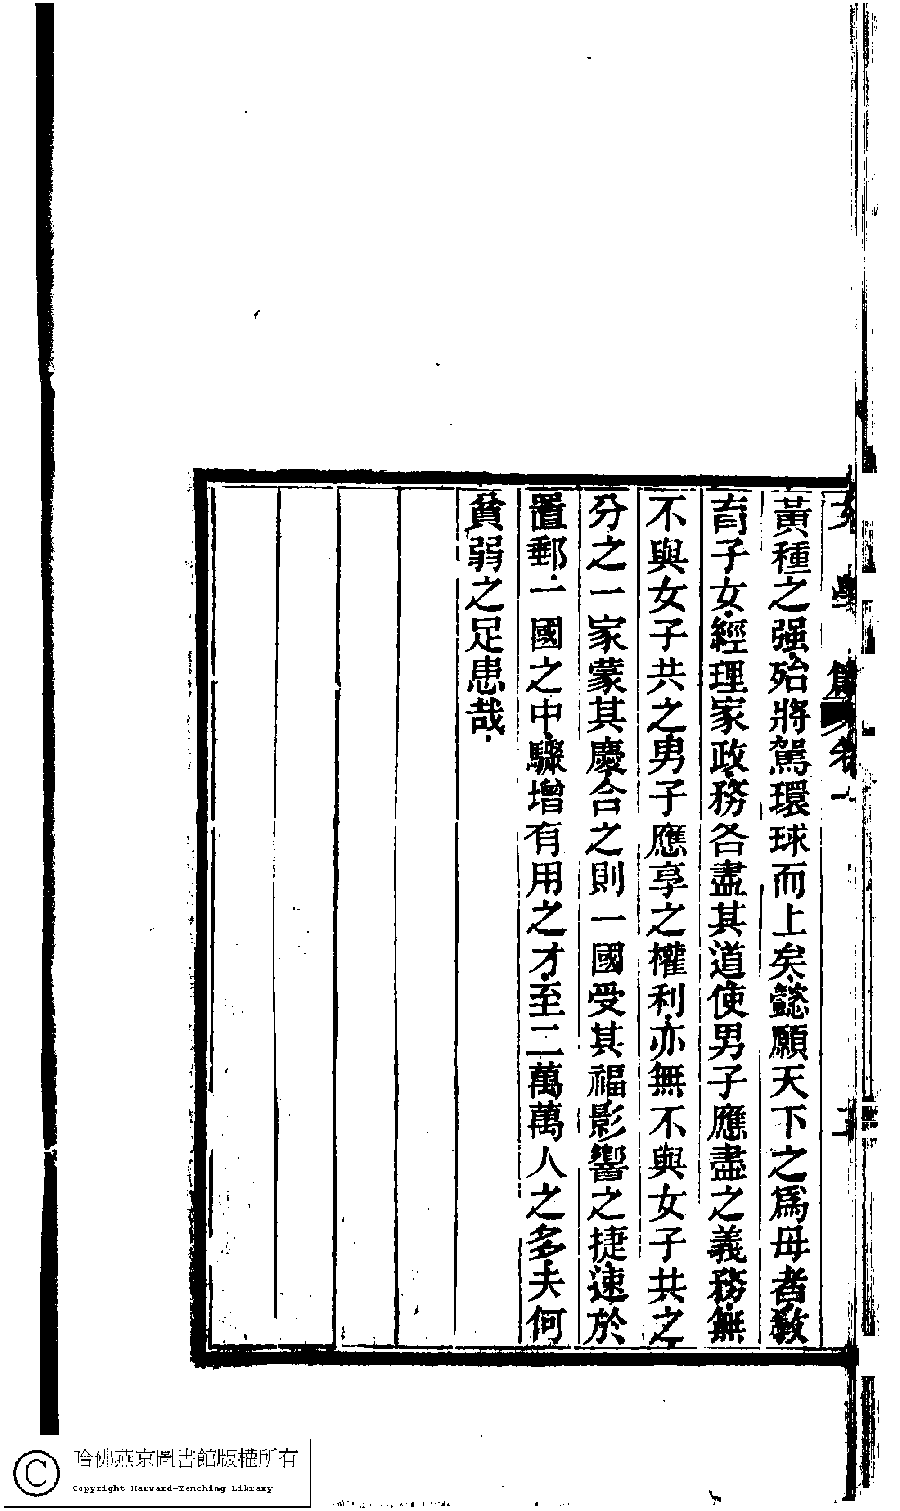 女學篇 卷一
黃種之强殆將駕環球而上矣懿願天下之爲母者敎
育子女經理家政務各盡其道使男子應盡之義務無
不與女子共之男子應享之權利亦無不與女子共之
分之一家蒙其慶合之則一國受其福影響之捷速於
置郵一國之中驟增有用之才至二萬萬人之多夫何
貧弱之足患哉
哈佛燕京圖書館版權所有
Copyright Harvard-Yenching Library